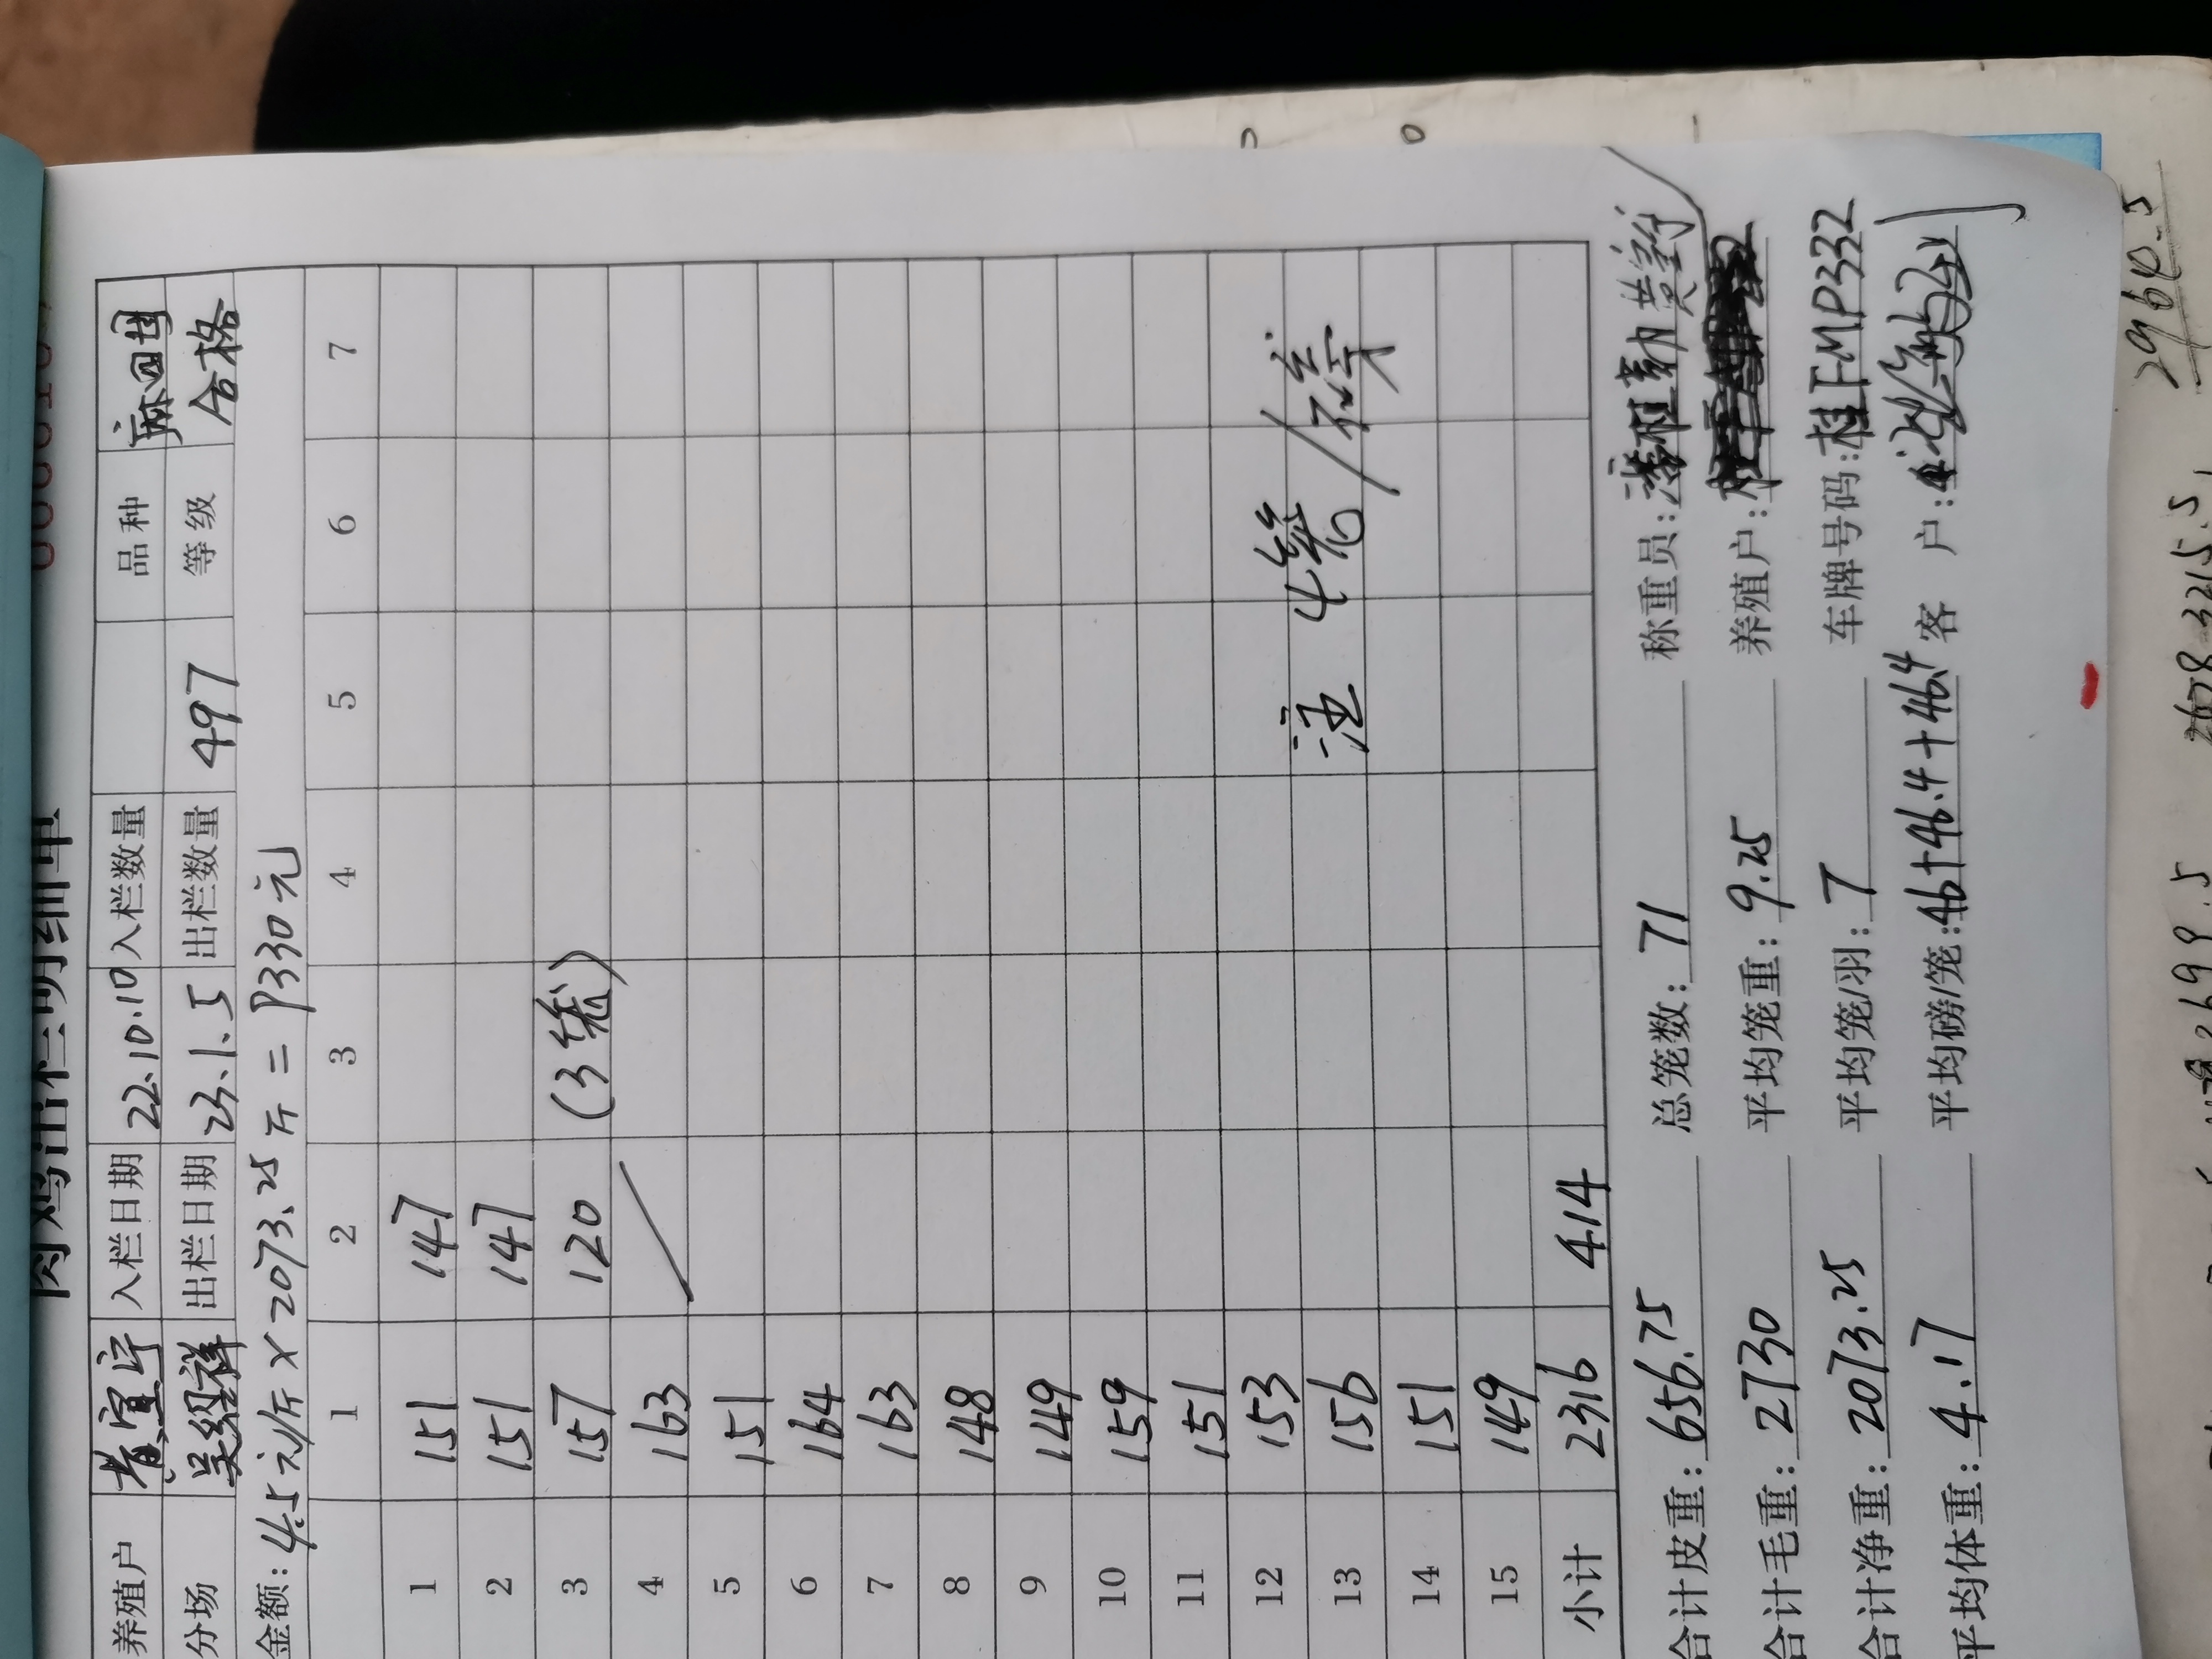 肉鸡出栏明细单
养殖户 黄宣宁 入栏日期 22.10.10 入栏数量 品种 麻四
分场 吴经祥 出栏日期 23.1.5 出栏数量 497 等级 合格
金额: 4.5元/斤×2073.25斤=9330元
1 2 3 4 5 6 7
1 151 147
2 151 147
3 157 120 (3笼)
4 163
5 151
6 164
7 163
8 148
9 149
10 159
11 151
12 153
13 156 注 4笼/榜
14 151
15 149
小计 2316 414
合计皮重: 656.75 总笼数: 71 称重员:
合计毛重: 2730 平均笼重: 9.25 养殖户:
合计净重: 2073.25 平均笼/羽: 7 车牌号码: 桂FMP332
平均体重: 4.17 平均磅/笼: 46+46.4+46.4 客 户:
2964.5
3215.5
2699.5